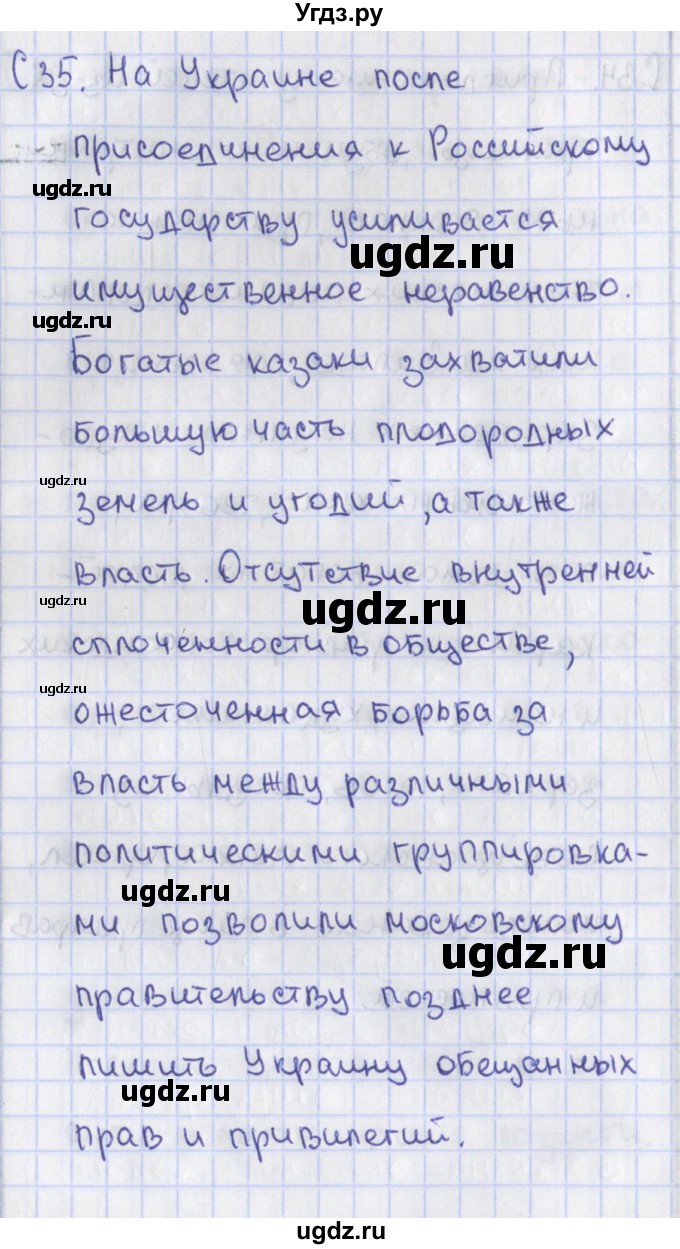 Угдз.ру
С35. На Украине после
присоединения к Российскому
ugdz.ru
государству усиливается
ugdz.ru
имущественное неравенство.
ugdz.ru
Богатые казаки захватили
большую часть плодородных
ugdz.ru
земель и угодий, а также
власть. Отсутствие внутренней
ugdz.ru
ugdz.ru
сплоченности в обществе,
ugdz.ru
ожесточенная борьба за
власть между различными
политическими группировка-
ugdz.ru
ми позволили московскому
ugdz.ru
правительству позднее
лишить Украину обещанных
ugdz.ru
прав и привилегий.
ugdz.ru